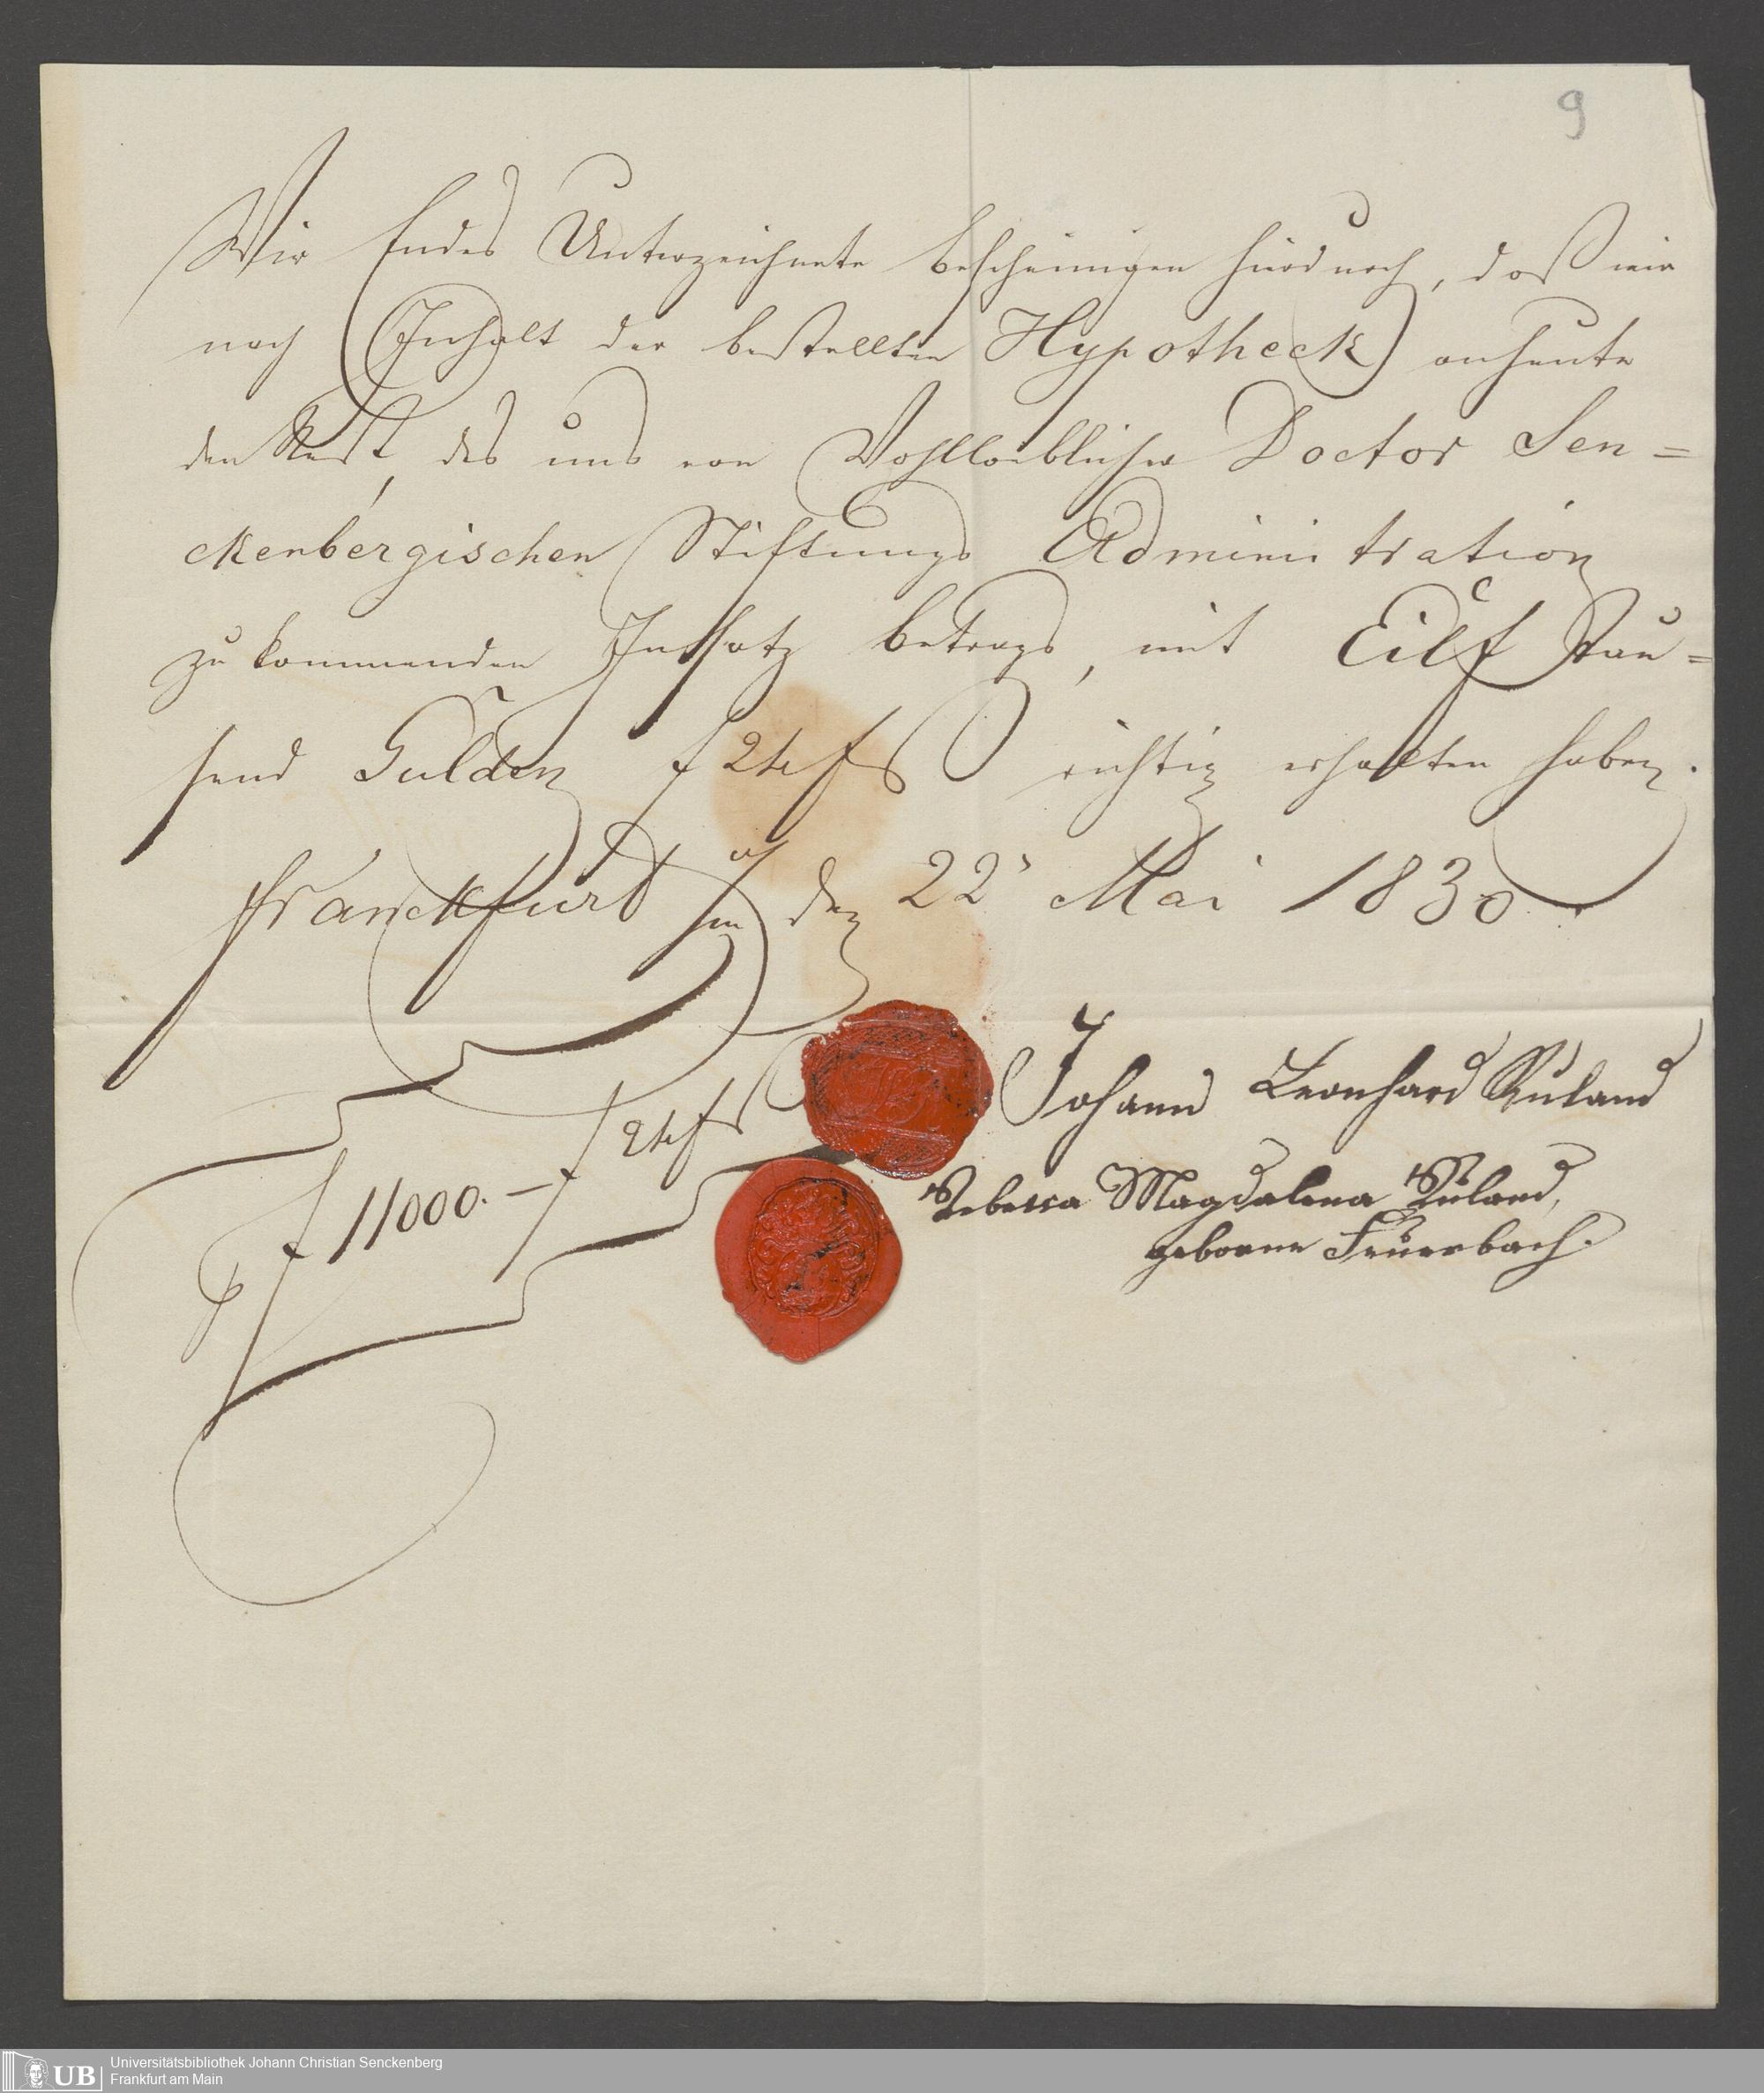 9
Wir Endes Unterzeichnete bescheinigen hierdurch, daß wir
nach Inhalt der bestellten Hypotheck anheute
den Rest, des uns von Wohlloeblicher Doctor Sen=
ckenbergischen Stiftungs Administration
zu kommenden Insatz betrags, mit Eilf Tau=
send Gulden f 24 fs richtig erhalten haben.
Franckfurt a/m den 22 Mai 1830.
Johann Leonhard Ruland
Rebecca Magdalena Ruland,
geborne Feuerbach.
f 11000.— f 24 fs
Universitätsbibliothek Johann Christian Senckenberg
Frankfurt am Main
UB